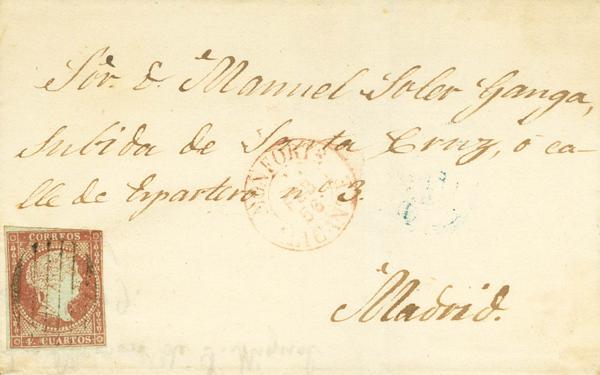 Sor. d. Manuel Soler Ganga,
subida de Santa Cruz, ó ca-
lle de Espartero nº 3.
MONFORTE
ALICANTE
Madrid.
CORREOS
4. CUARTOS